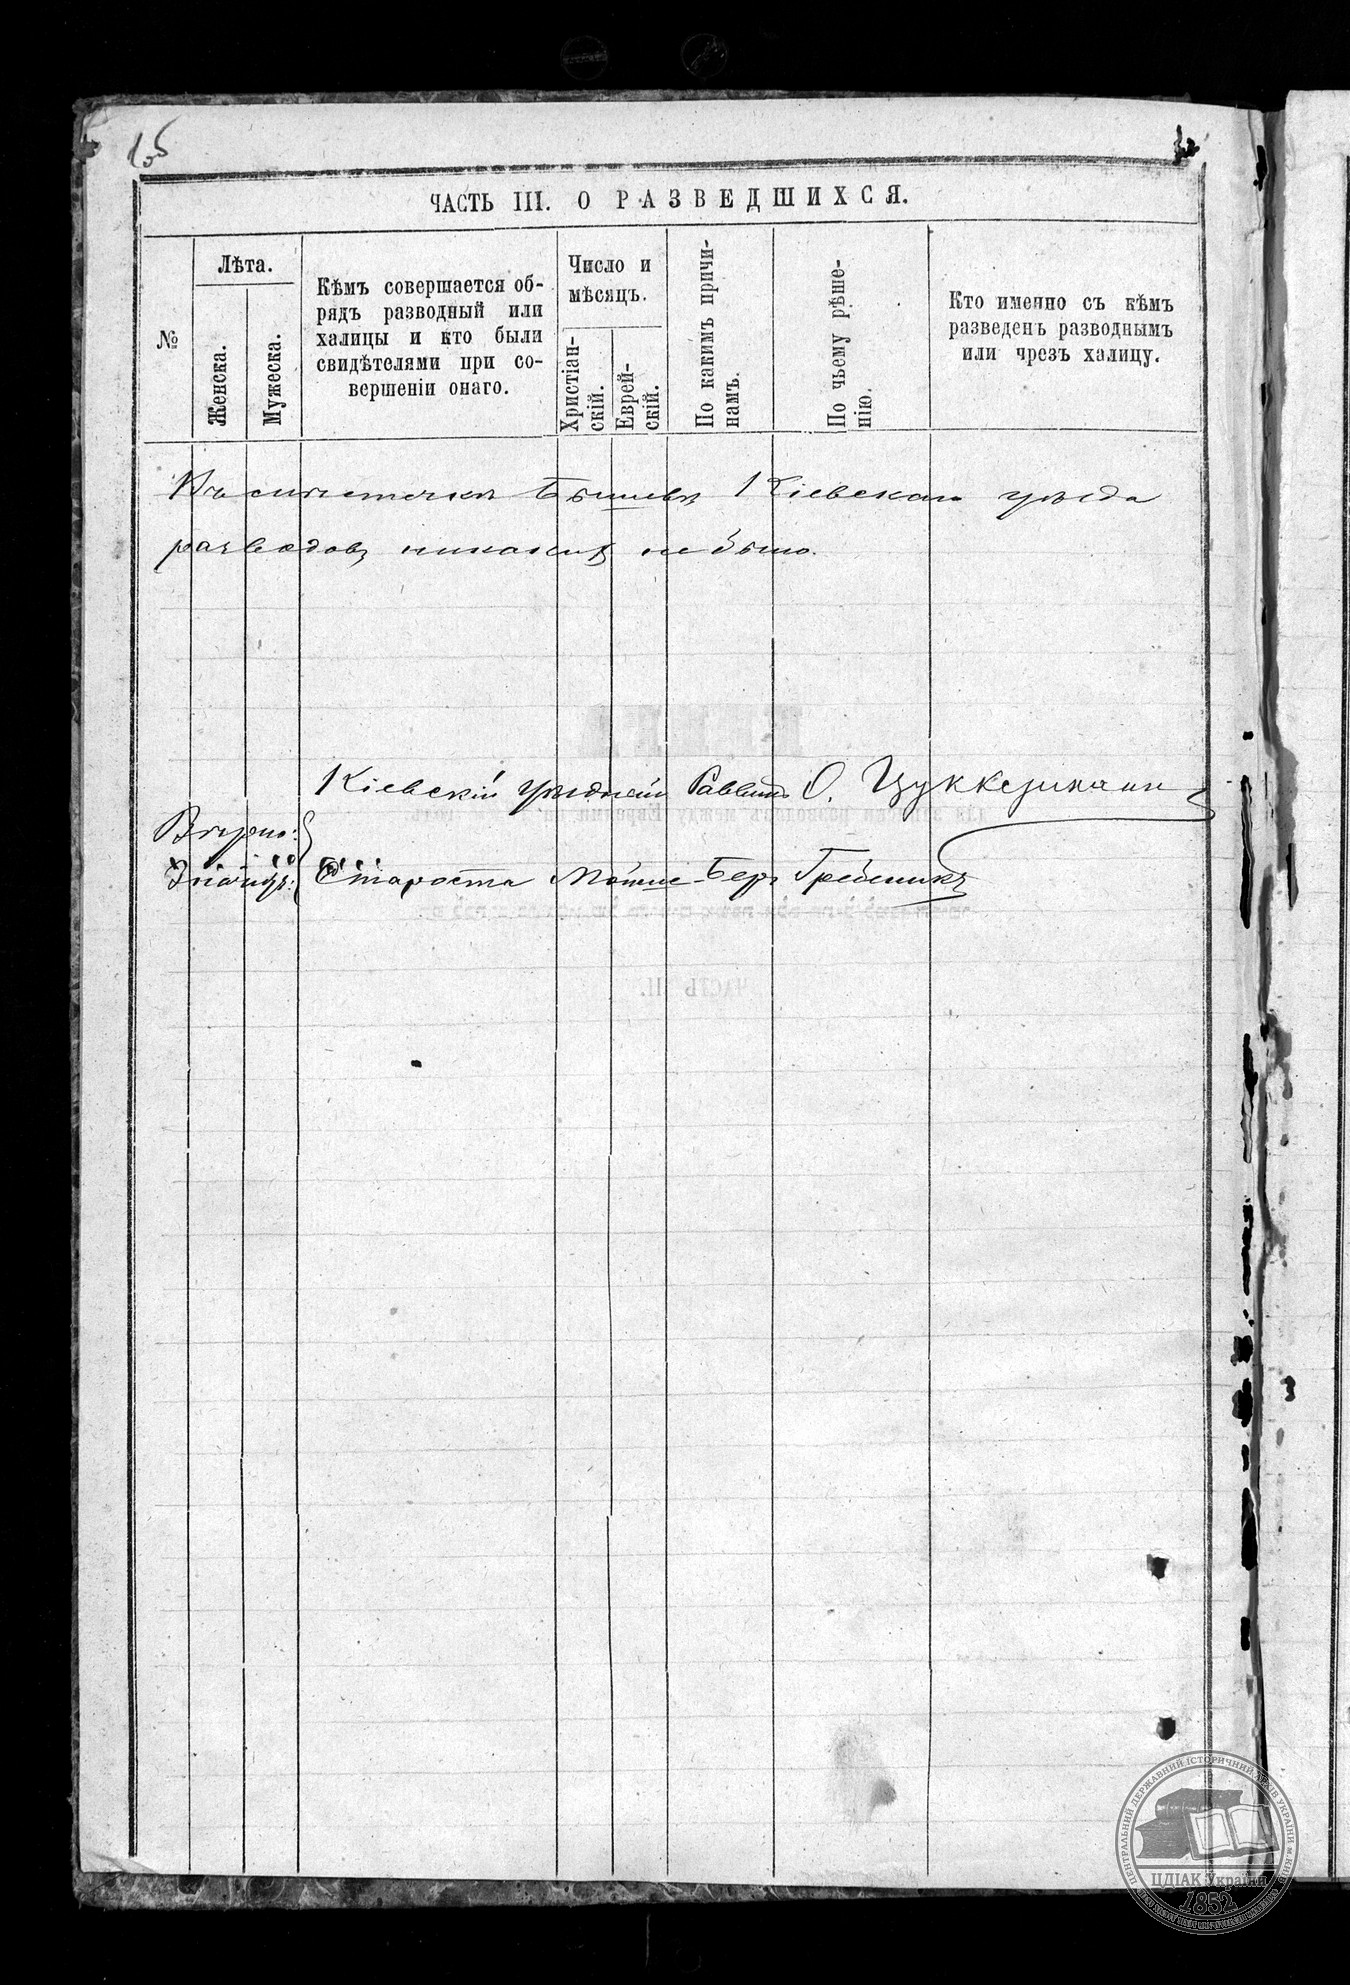 ЧАСТЬ III. О РАЗВЕДШИХСЯ.
№
Лѣта.
Женска.
Мужеска.
Кѣмъ совершается об-
рядъ разводный или
халицы и кто были
свидѣтелями при со-
вершеніи онаго.
Число и
мѣсяцъ.
Христіан-
скій.
Еврей-
скій.
По какимъ причи-
намъ.
По чьему рѣше-
нію.
Кто именно съ кѣмъ
разведенъ разводнымъ
или чрезъ халицу.
Въ мѣстечкѣ Бышевѣ Кіевскаго уѣзда
разводовъ никакихъ не было.
Кіевскій уѣздный Раввинъ О. Цуккерманъ
Вѣрно:
Староста Мошко-Беръ Гребенникъ
ЧАСТЬ III.
ЦЕНТРАЛЬНИЙ ДЕРЖАВНИЙ ІСТОРИЧНИЙ АРХІВ УКРАЇНИ м. КИЇВ
ЦДІАК України
1852